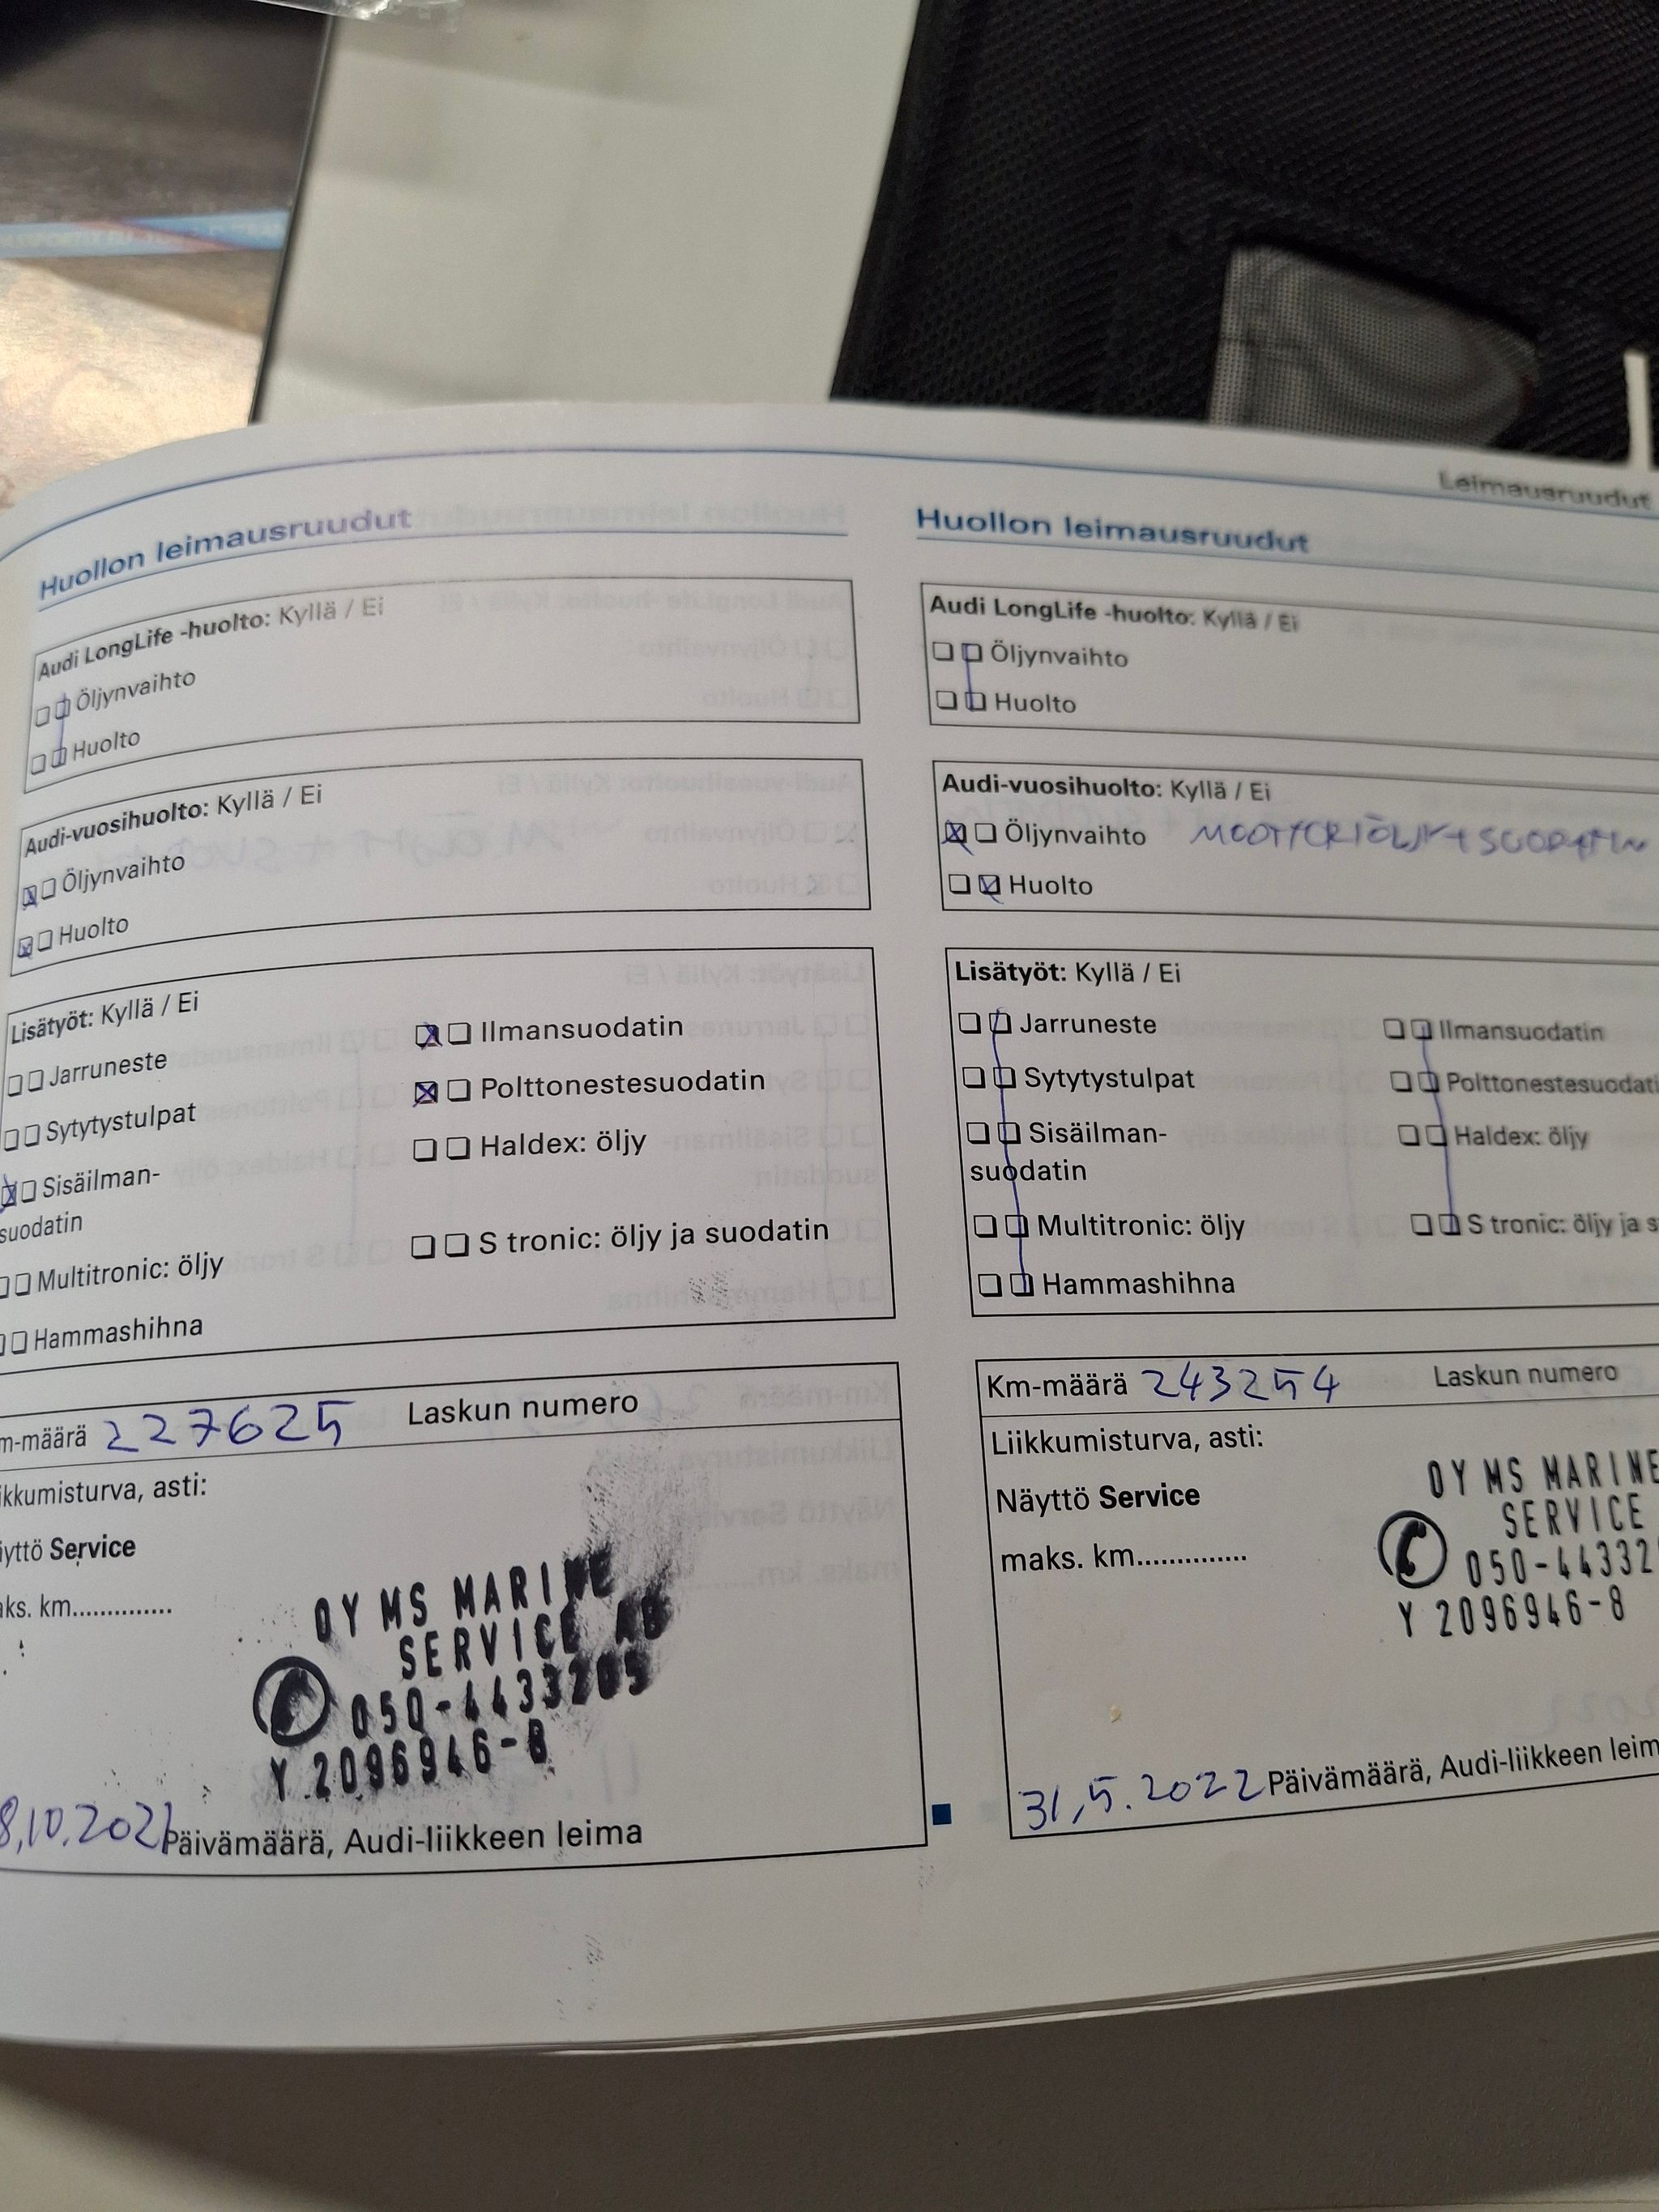 Leimausruudut
Huollon leimausruudut
Audi LongLife -huolto: Kyllä / Ei
Öljynvaihto
Huolto
Audi-vuosihuolto: Kyllä / Ei
Öljynvaihto
Huolto
Lisätyöt: Kyllä / Ei
Jarruneste
Sytytystulpat
Sisäilman-
suodatin
Multitronic: öljy
Hammashihna
Ilmansuodatin
Polttonestesuodatin
Haldex: öljy
S tronic: öljy ja suodatin
m-määrä 227625 Laskun numero
ikkumisturva, asti:
äyttö Service
aks. km..............
OY MS MARINE
SERVICE AB
050-4433205
Y 2096946-8
8.10.2021 Päivämäärä, Audi-liikkeen leima
Huollon leimausruudut
Audi LongLife -huolto: Kyllä / Ei
Öljynvaihto
Huolto
Audi-vuosihuolto: Kyllä / Ei
Öljynvaihto MOOTTORIÖLJY + SUODATIN
Huolto
Lisätyöt: Kyllä / Ei
Jarruneste
Sytytystulpat
Sisäilman-
suodatin
Multitronic: öljy
Hammashihna
Ilmansuodatin
Polttonestesuodati
Haldex: öljy
S tronic: öljy ja s
Km-määrä 243254 Laskun numero
Liikkumisturva, asti:
Näyttö Service
maks. km..............
OY MS MARINE
SERVICE
050-44332
Y 2096946-8
31.5.2022 Päivämäärä, Audi-liikkeen leim